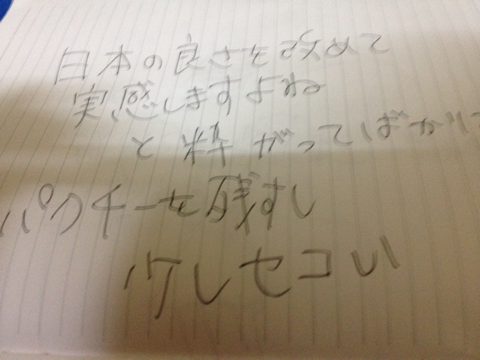 日本の良さを改めて
実感しますよね
と粋がってばかりで
パクチーを残すし
少しセコい